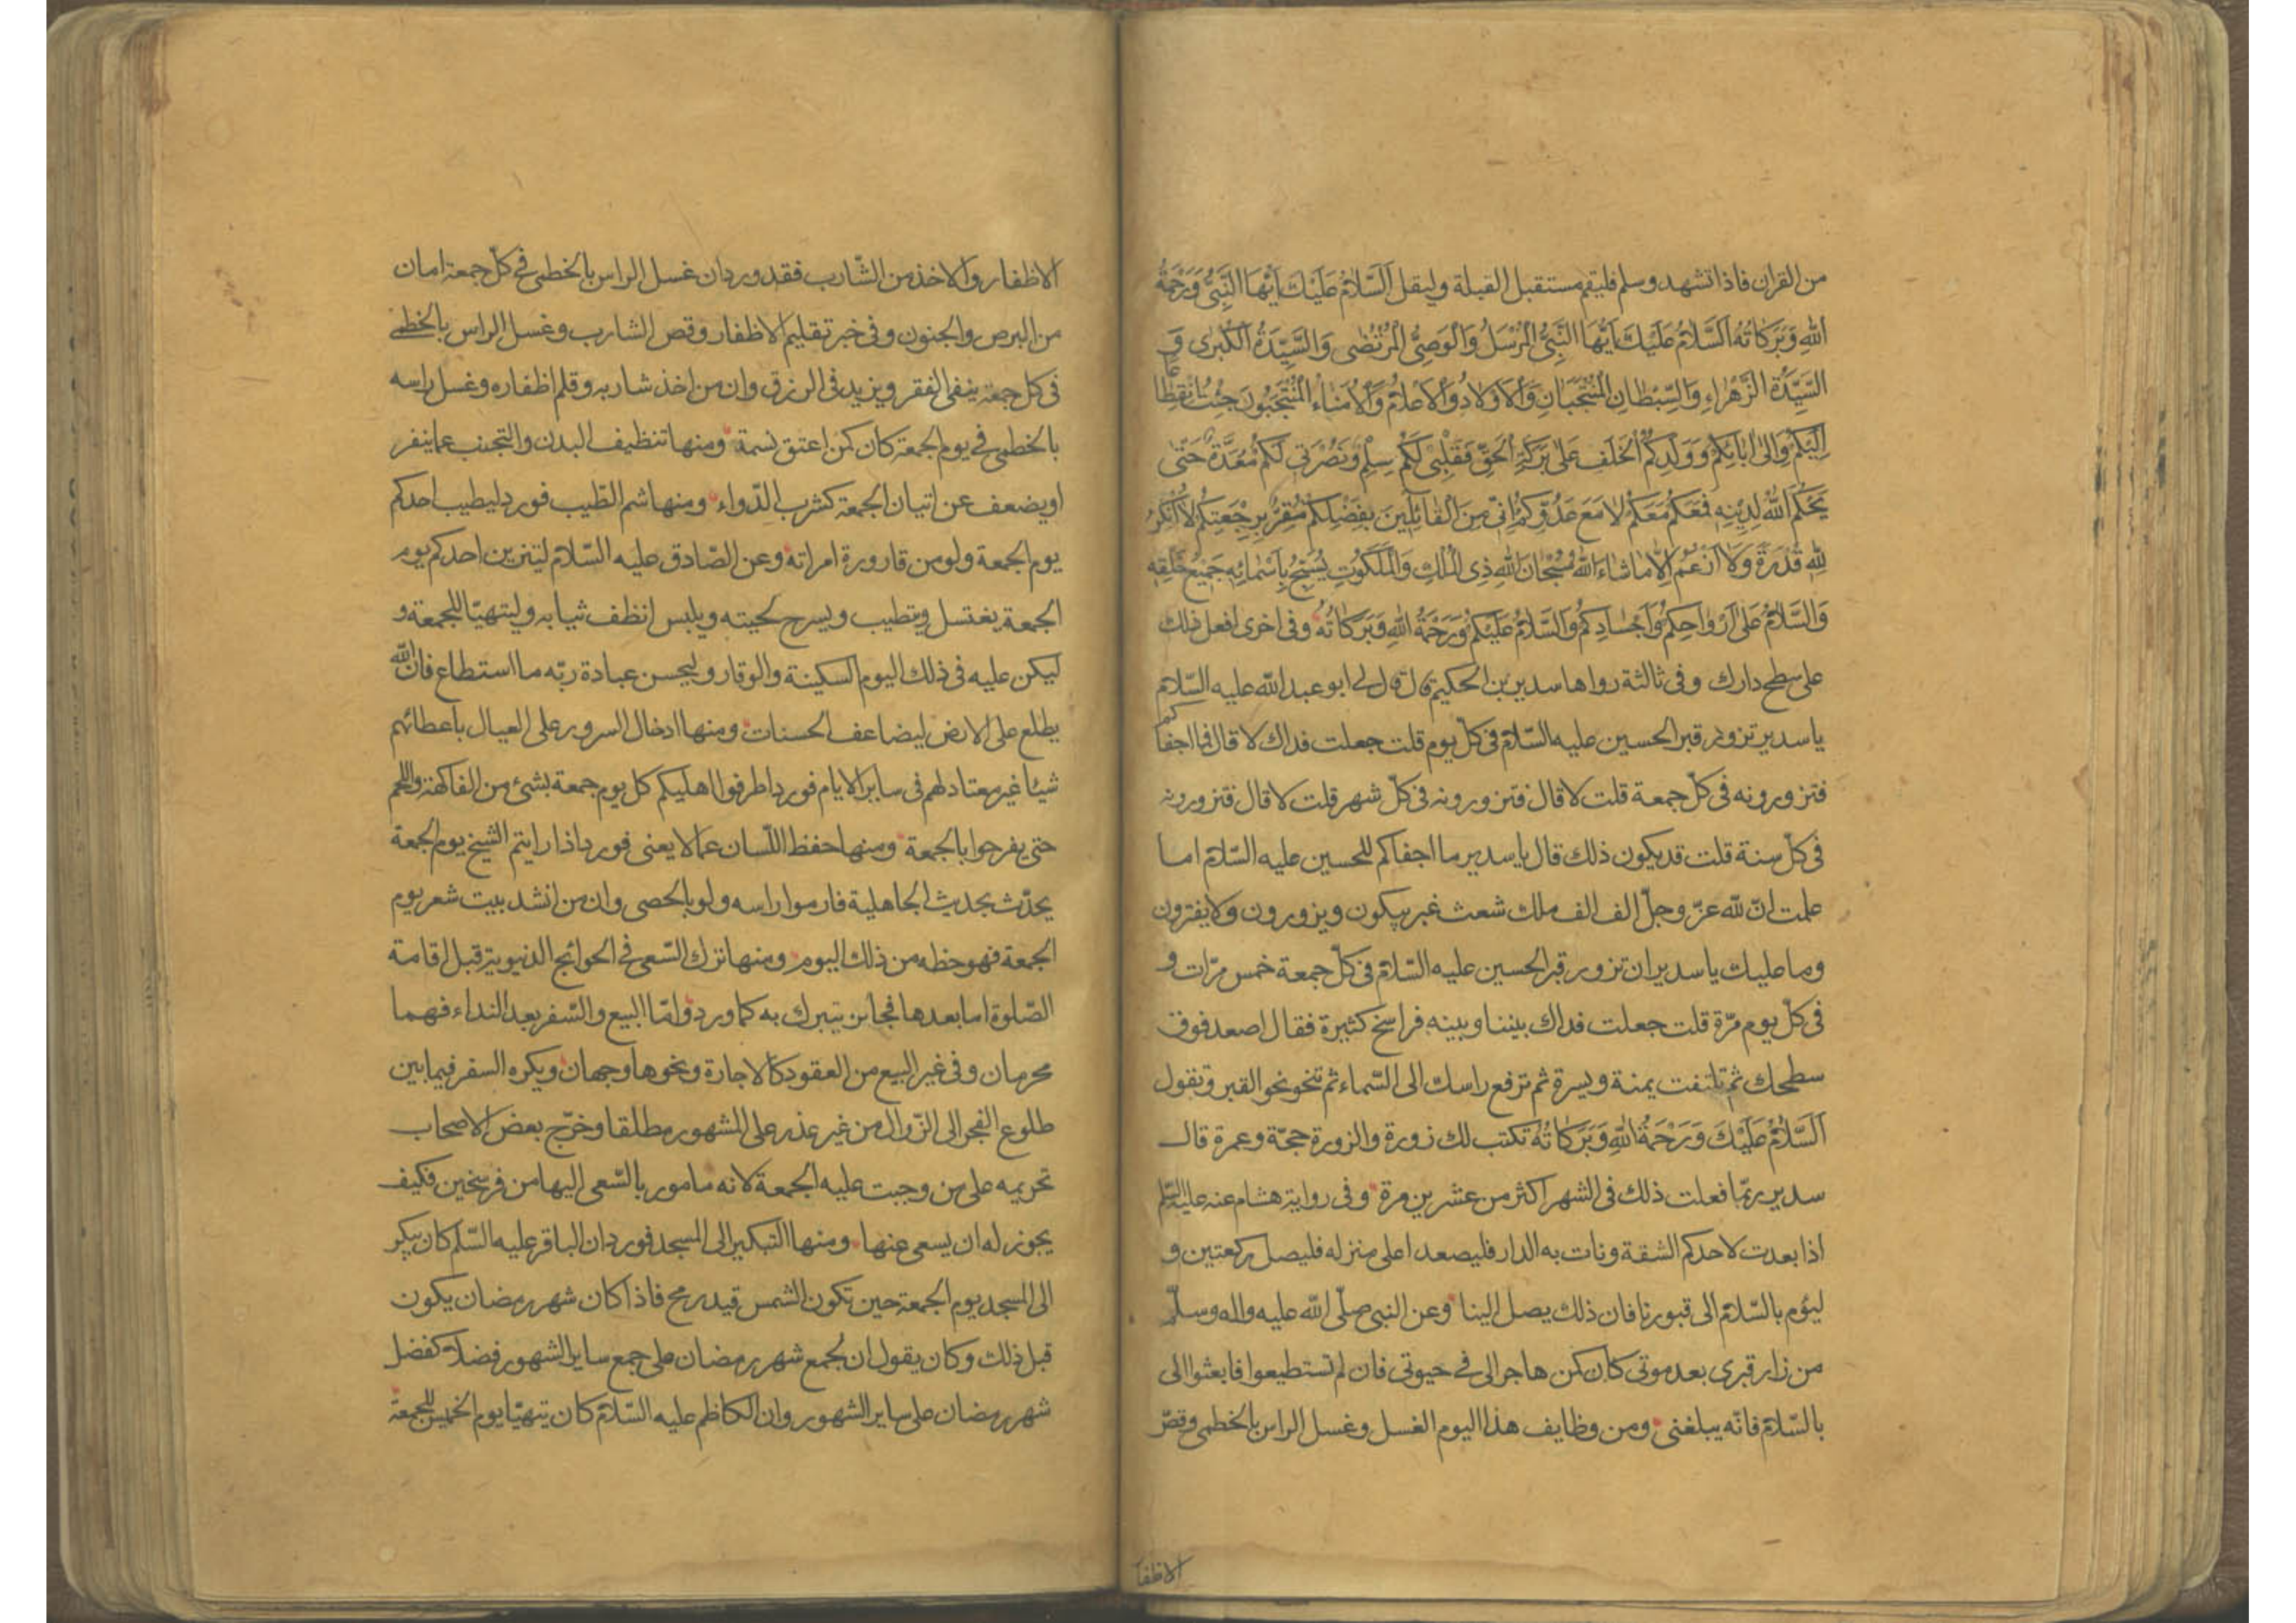 من القران فاذا تشهد وسلم فليقم مستقبل القبلة وليقل اَلسَّلامُ عَلَيْكَ اَيُّهَا النَّبِيُّ وَرَحْمَةُ
اللهِ وَبَرَكاتُهُ اَلسَّلامُ عَلَيْكَ اَيُّهَا النَّبِيُّ الْمُرْسَلُ وَالْوَصِيُّ الْمُرْتَضى وَالسَّيِّدَةُ الْكُبْرى وَ
السَّيِّدَةُ الزَّهْراءِ وَالسِّبْطانِ الْمُنْتَجَبانِ وَالْاَوْلادُ وَالْاَعْلامُ وَالْاُمَناءُ الْمُنْتَجَبُونَ جِئْتُ انْقِطاعًا
اِلَيْكُمْ وَاِلى ابائِكُمْ وَوَلَدِكُمُ الْخَلَفِ عَلى بَرَكَةِ الْحَقِّ فَقَلْبي لَكُمْ سِلْمٌ وَنُصْرَتي لَكُمْ مُعَدَّةٌ حَتّى
يَحْكُمَ اللهُ لِدِينِهِ فَمَعَكُمْ مَعَكُمْ لا مَعَ عَدُوِّكُمْ اِنّي مِنَ الْقائِلِينَ بِفَضْلِكُمْ مُقِرٌّ بِرَجْعَتِكُمْ لا اُنْكِرُ
لِلّهِ قُدْرَةً وَلا اَزْعُمُ اِلّا ما شاءَ اللهُ سُبْحانَ اللهِ ذِي الْمُلْكِ وَالْمَلَكُوتِ يُسَبِّحُ بِاَسْمائِهِ جَمِيعُ خَلْقِهِ
وَالسَّلامُ عَلى اَرْواحِكُمْ وَاَجْسادِكُمْ وَالسَّلامُ عَلَيْكُمْ وَرَحْمَةُ اللهِ وَبَرَكاتُهُ وفى اخرى افعل ذلك
على سطح دارك وفى ثالثة رواها سدير بن الحكيم قال قال لى ابو عبد الله عليه السّلام
يا سدير تزور قبر الحسين عليه السّلام فى كلّ يوم قلت جعلت فداك لا قال فما اجفاكم
فتزورونه فى كلّ جمعة قلت لا قال فتزورونه فى كلّ شهر قلت لا قال فتزورونه
فى كلّ سنة قلت قد يكون ذلك قال يا سدير ما اجفاكم للحسين عليه السّلام اما
علمت انّ لله عزّ وجلّ الف الف ملك شعث غبر يبكون ويزورون ولا يفترون
وما عليك يا سدير ان تزور قبر الحسين عليه السّلام فى كلّ جمعة خمس مرّات و
فى كلّ يوم مرّة قلت جعلت فداك بيننا وبينه فراسخ كثيرة فقال اصعد فوق
سطحك ثم تلتفت يمنة ويسرة ثم ترفع راسك الى السّماء ثم تنحو نحو القبر وتقول
اَلسَّلامُ عَلَيْكَ وَرَحْمَةُ اللهِ وَبَرَكاتُهُ تكتب لك زورة والزورة حجّة وعمرة قال
سدير ربّما فعلت ذلك فى الشهر اكثر من عشرين مرة وفى رواية هشام عنه عليه السّلم
اذا بعدت لاحدكم الشقة ونات به الدار فليصعد اعلى منزله فليصل ركعتين و
ليؤم بالسّلام الى قبورنا فان ذلك يصل الينا وعن النبى صلّى الله عليه واله وسلّم
من زار قبرى بعد موتى كان كمن هاجر الى فى حيوتى فان لم تستطيعوا فابعثوا الى
بالسّلام فانّه يبلغنى ومن وظايف هذا اليوم الغسل وغسل الراس بالخطمى وقصّ
الاظفا
الاظفار والاخذ من الشّارب فقد ورد ان غسل الراس بالخطمى فى كلّ جمعة امان
من البرص والجنون وفى خبر تقليم الاظفار وقص الشارب وغسل الراس بالخطمى
فى كل جمعة ينفى الفقر ويزيد فى الرزق وان من اخذ شاربه وقلم اظفاره وغسل راسه
بالخطمى فى يوم الجمعة كان كمن اعتق نسمة ومنها تنظيف البدن والتجنب عما ينفر
او يضعف عن اتيان الجمعة كشرب الدّواء ومنها شم الطّيب فورد ليطيب احدكم
يوم الجمعة ولو من قارورة امراته وعن الصّادق عليه السّلام ليتزين احدكم يوم
الجمعة يغتسل ويتطيب ويسرح لحيته ويلبس انظف ثيابه وليتهيّا للجمعة و
ليكن عليه فى ذلك اليوم السكينة والوقار وليحسن عبادة ربّه ما استطاع فان الله
يطلع على الارض ليضاعف الحسنات ومنها ادخال السرور على العيال باعطائهم
شيئا غير معتاد لهم فى ساير الايام فورد اطرفوا اهليكم كل يوم جمعة بشئ من الفاكهة واللحم
حتى يفرحوا بالجمعة ومنها حفظ اللّسان عما لا يعنى فورد اذا رايتم الشيخ يوم الجمعة
يحدّث بحديث الجاهلية فارموا راسه ولو بالحصى وان من انشد بيت شعر يوم
الجمعة فهو حظه من ذلك اليوم ومنها ترك السّعى فى الحوائج الدنيوية قبل اقامة
الصّلوة اما بعدها فجائز يتبرك به كما ورد وامّا البيع والسّفر بعد النداء فهما
محرمان وفى غير البيع من العقود كالاجارة ونحوها وجهان ويكره السفر فيما بين
طلوع الفجر الى الزّوال من غير عذر على المشهور مطلقا وخرّج بعض الاصحاب
تحريمه على من وجبت عليه الجمعة لانه مامور بالسّعى اليها من فرسخين فكيف
يجوز له ان يسعى عنها ومنها التبكير الى المسجد فورد ان الباقر عليه السّلم كان يبكر
الى المسجد يوم الجمعة حين تكون الشمس قيد رمح فاذا كان شهر رمضان يكون
قبل ذلك وكان يقول ان لجمع شهر رمضان على جمع ساير الشهور فضلا كفضل
شهر رمضان على ساير الشهور وان الكاظم عليه السّلام كان يتهيّا يوم الخميس للجمعة